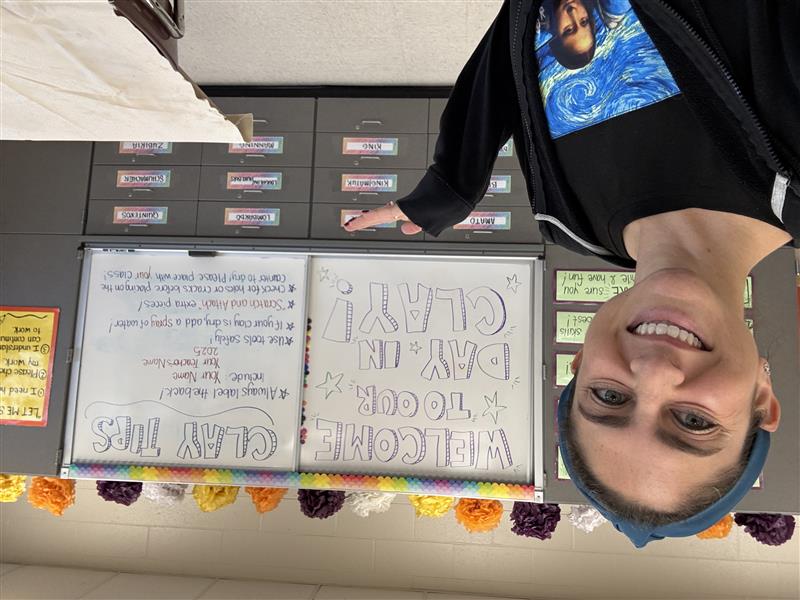 WELCOME
TO OUR
DAY IN
CLAY!
CLAY TIPS
★Always label the back!
include: Your Name
Your Teacher's Name
2025
★Use tools safely!
★If your clay is dry, add a spray of water!
★"Scratch and Attach" extra pieces!
★Check for flakes or cracks before placing on the
counter to dry. Please place with your class!
LET ME S
I need h
Please che
my work
I understa
can continu
to work
SURE you
& have fun!
skills
best!
AMATO
LOMBARDO
QUINTEROS
KING/MATUK
SCHUMACHER
KING
MANNING
ZUBIRIA